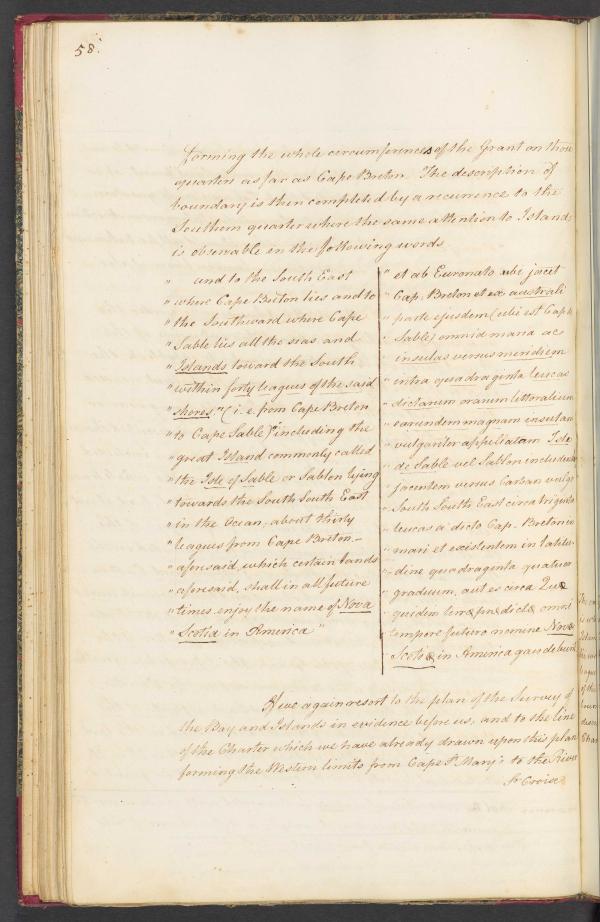 58.
forming the whole circumferences of the Grant on those
quarters as far as Cape Breton The description of
boundary is then completed by a recurrence to the
Southern quarter where the same attention to Islands
is observable in the following words
" and to the South East
" where Cape Briton lies and to
" the Southward where Cape
" Sable lies all the seas and
" Islands toward the South
" within forty leagues of the said
" shores," (i. e. from Cape Breton
" to Cape Sable) "including the
" great Island commonly called
" the Isle of Sable or Sablon lying
" towards the South South East
" in the Ocean, about thirty
" leagues from Cape Breton
" aforesaid, which certain lands
" aforesaid, shall in all future
" times enjoy the name of Nova
" Scotia in America "
" et ab Euronato ubi jacet
" Cap. Breton et ex australi
" parte ejusdem (ubi est Cap de
" Sable) omnid maria ac
" insulas versus meridiem
" intra quadraginta leucas
" dictarum orarum littoralium
" earundem magnam insulam
" vulgariter appellatam Isle
" de Sable vel Sablon includen
" jacentem versus Carban vulgo
" South South East circa triginta
" leucas a dicto Cap. Breton in
" mari et existentem in latitu-
" dine quadraginta quatuor
" graduum, aut es circa Quæ
" quidem terræ prædictæ omni
" tempore futuro nomine Novæ
" Scotiæ in America gaudebunt
If we again resort to the plan of the Survey of
the Bay and Islands in evidence before us, and to the line
of the Charter which we have already drawn upon this plan
forming the Western limits from Cape St. Mary's to the River
St. Croix